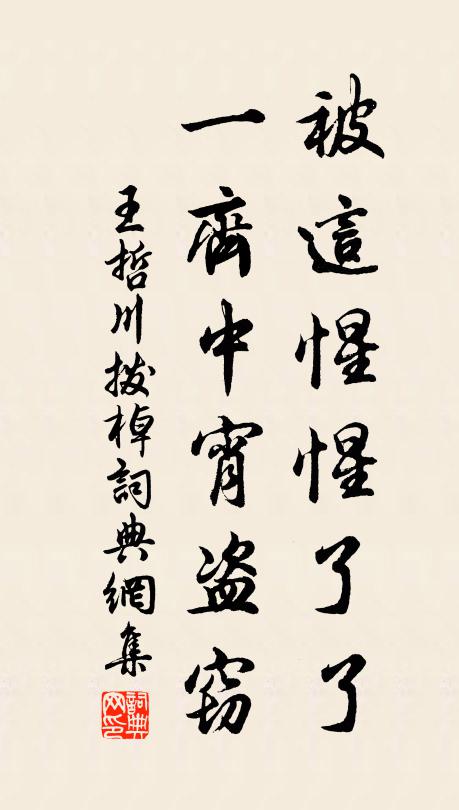 被這惺惺了了
一齊中宵盗窃
王哲川拨棹詞典網集
詞典
网印